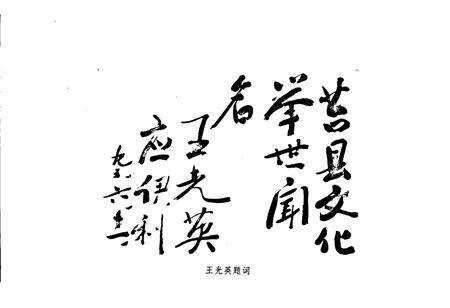 莒县文化
举世闻
名
王光英
应伊利
九五.六.十一
王光英题词